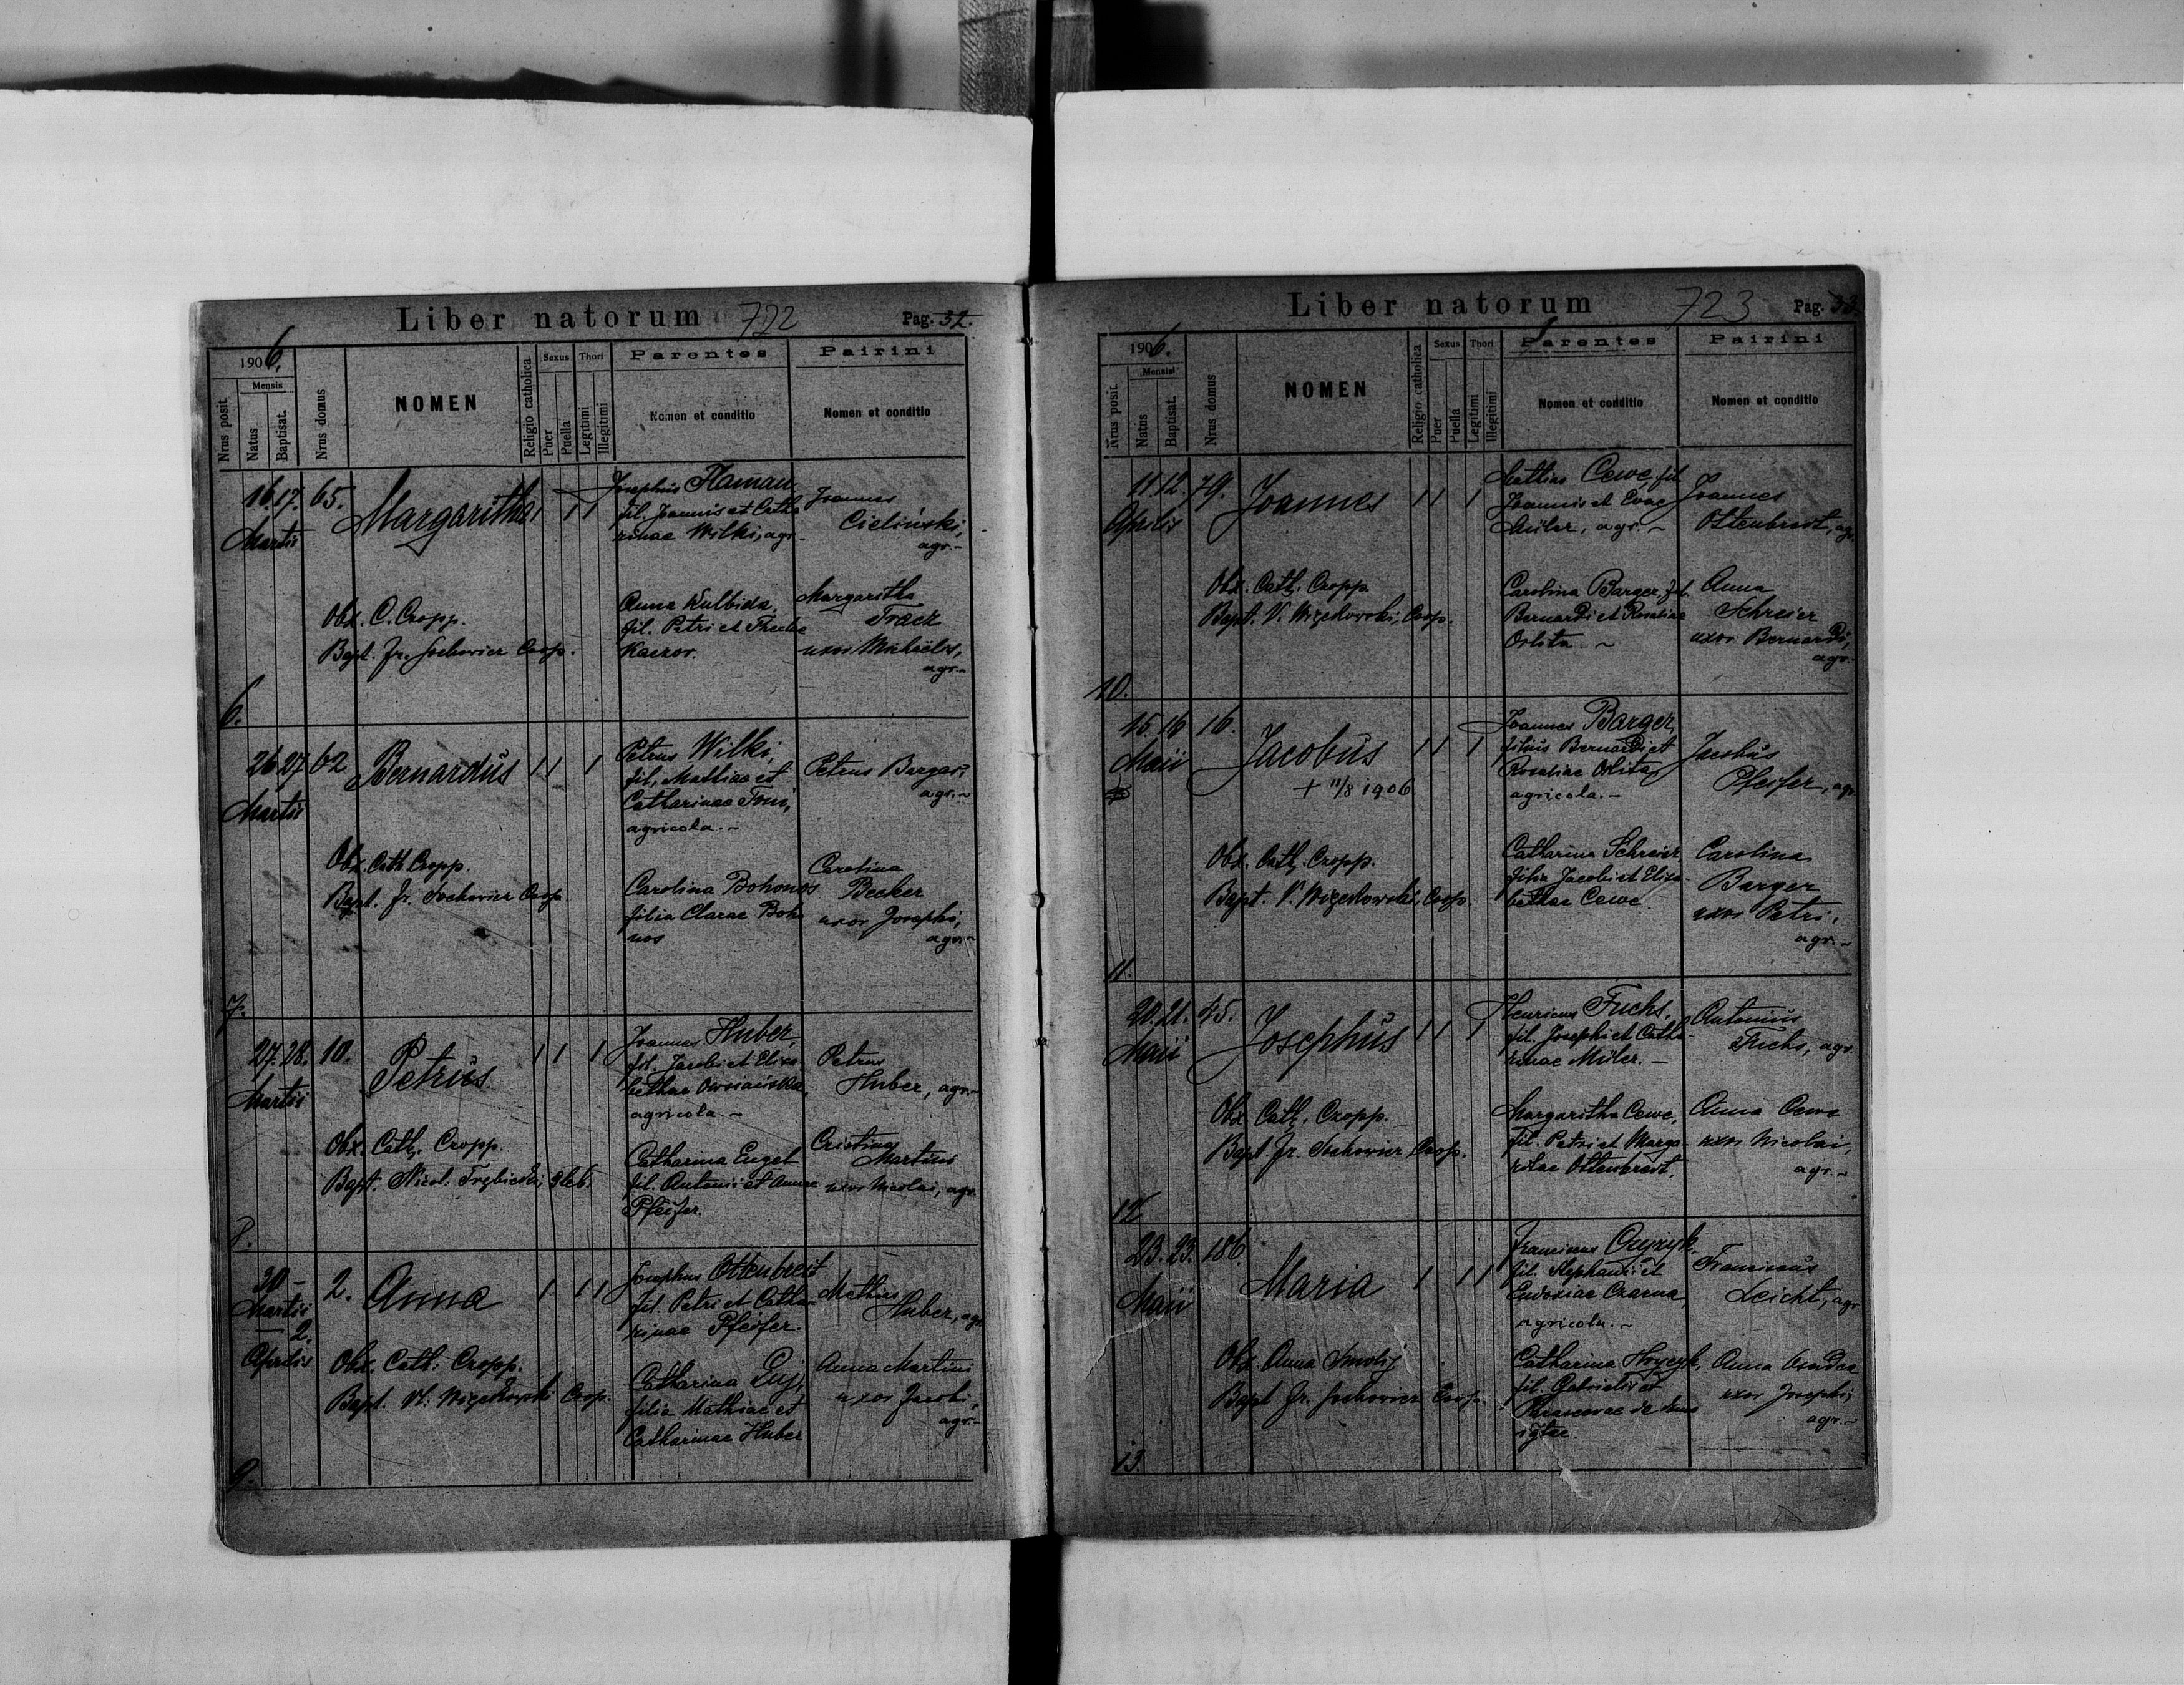 Liber natorum 722 Pag. 32.
1906.
Nrus posit.
Mensis
Natus
Baptisat.
Nrus domus
NOMEN
Religio catholica
Sexus
Puer
Puella
Thori
Legitimi
Illegitimi
Parentes
Nomen et conditio
Patrini
Nomen et conditio
16. 17. 65. Margaritha 1 1 1
Martii
Josephus Haman
fil. Joannis et Catha
rinae Wilki, agr.
Joannes
Cieliński,
agr.
Obs. C. Cropp.
Bapt. Fr. Sochowicz Coop.
Anna Kulbida,
fil. Petri et Theclae
Kaczor.
Margaritha
Track
uxor Michaelis,
agr.
6.
26 27 62 Bernardus 1 1 1
Martii
Petrus Wilki,
fil. Mathiae et
Catharinae
agricola.
Petrus Barger,
agr.
Obs. Cath. Cropp.
Bapt. Fr. Sochowicz Coop
Carolina Bohonos
filia Clarae Boho
nos
Carolina
Becker
uxor Josephi,
agr.
7.
27. 28. 10. Petrus. 1 1 1
Martii
Joannes Huber,
fil. Jacobi et Eliza
bethae
agricola.
Petrus
Huber, agr.
Obs. Cath. Cropp.
Bapt. Nicol.
Catharina Engel
fil. Antonii et Annae
Pfeifer.
Cristina
Martini
uxor Nicolai, agr.
8.
30 2. Anna 1 1 1
Martii
2.
Aprilis
Josephus Ottenbreit
fil. Petri et Catha
rinae Pfeifer.
Mathias
Huber, agr
Obs. Cath. Cropp.
Bapt. Coop.
Catharina
filia Mathiae et
Catharinae Huber
Anna Martini
uxor Jacobi,
agr.
9.
Liber natorum 723 Pag. 33.
1906.
Nrus posit.
Mensis
Natus
Baptisat.
Nrus domus
NOMEN
Religio catholica
Sexus
Puer
Puella
Thori
Legitimi
Illegitimi
Parentes
Nomen et conditio
Patrini
Nomen et conditio
11. 12. 79. Joannes 1 1 1
Aprilis
Mathias Cewe, fil.
Joannis et Evae
Miler, agr.
Joannes
Ottenbreit, agr.
Obs. Cath. Cropp
Bapt. V. Coop.
Carolina Barger, fil.
Bernardi et Rosaliae
Orlita
Anna
Schreier
uxor Bernardi,
agr.
10.
15. 16 16. Jacobus 1 1 1
Maii
+ 11/8 1906
Joannes Barger,
filius Bernardi et
Rosaliae Orlita,
agricola.
Jacobus
Pfeifer, agr
Obs. Cath. Cropp.
Bapt. V. Coop.
Catharina Schreier
filia Jacobi et Eliza
bethae Cewe.
Carolina
Barger
uxor Petri,
agr.
11.
20. 21. 45. Josephus 1 1 1
Maii
Henricus Fuchs,
fil. Josephi et Catha
rinae Miler.
Antonius
Fuchs, agr.
Obs Cath. Cropp.
Bapt. Fr. Sochowicz Coop.
Margaritha Cewe,
fil. Petri et Marga
ritae Ottenbreit.
Anna Cewe
uxor Nicolai,
agr.
12
23. 23. 186. Maria 1 1 1
Maii
Franciscus
fil. Stephani et
Eudoxiae Czarna,
agricola.
Franciscus
Leicht, agr
Obs. Anna Smolij
Bapt Fr. Sochowicz Coop.
Catharina Hrycyk,
fil. Gabrielis et
Parascevae de
Anna
uxor Josephi,
agr.
13